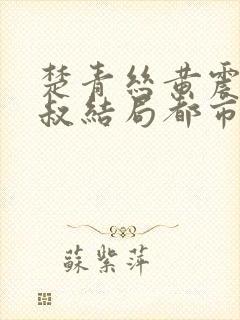 楚青丝黄震
叔结局都市
蘇紫萍